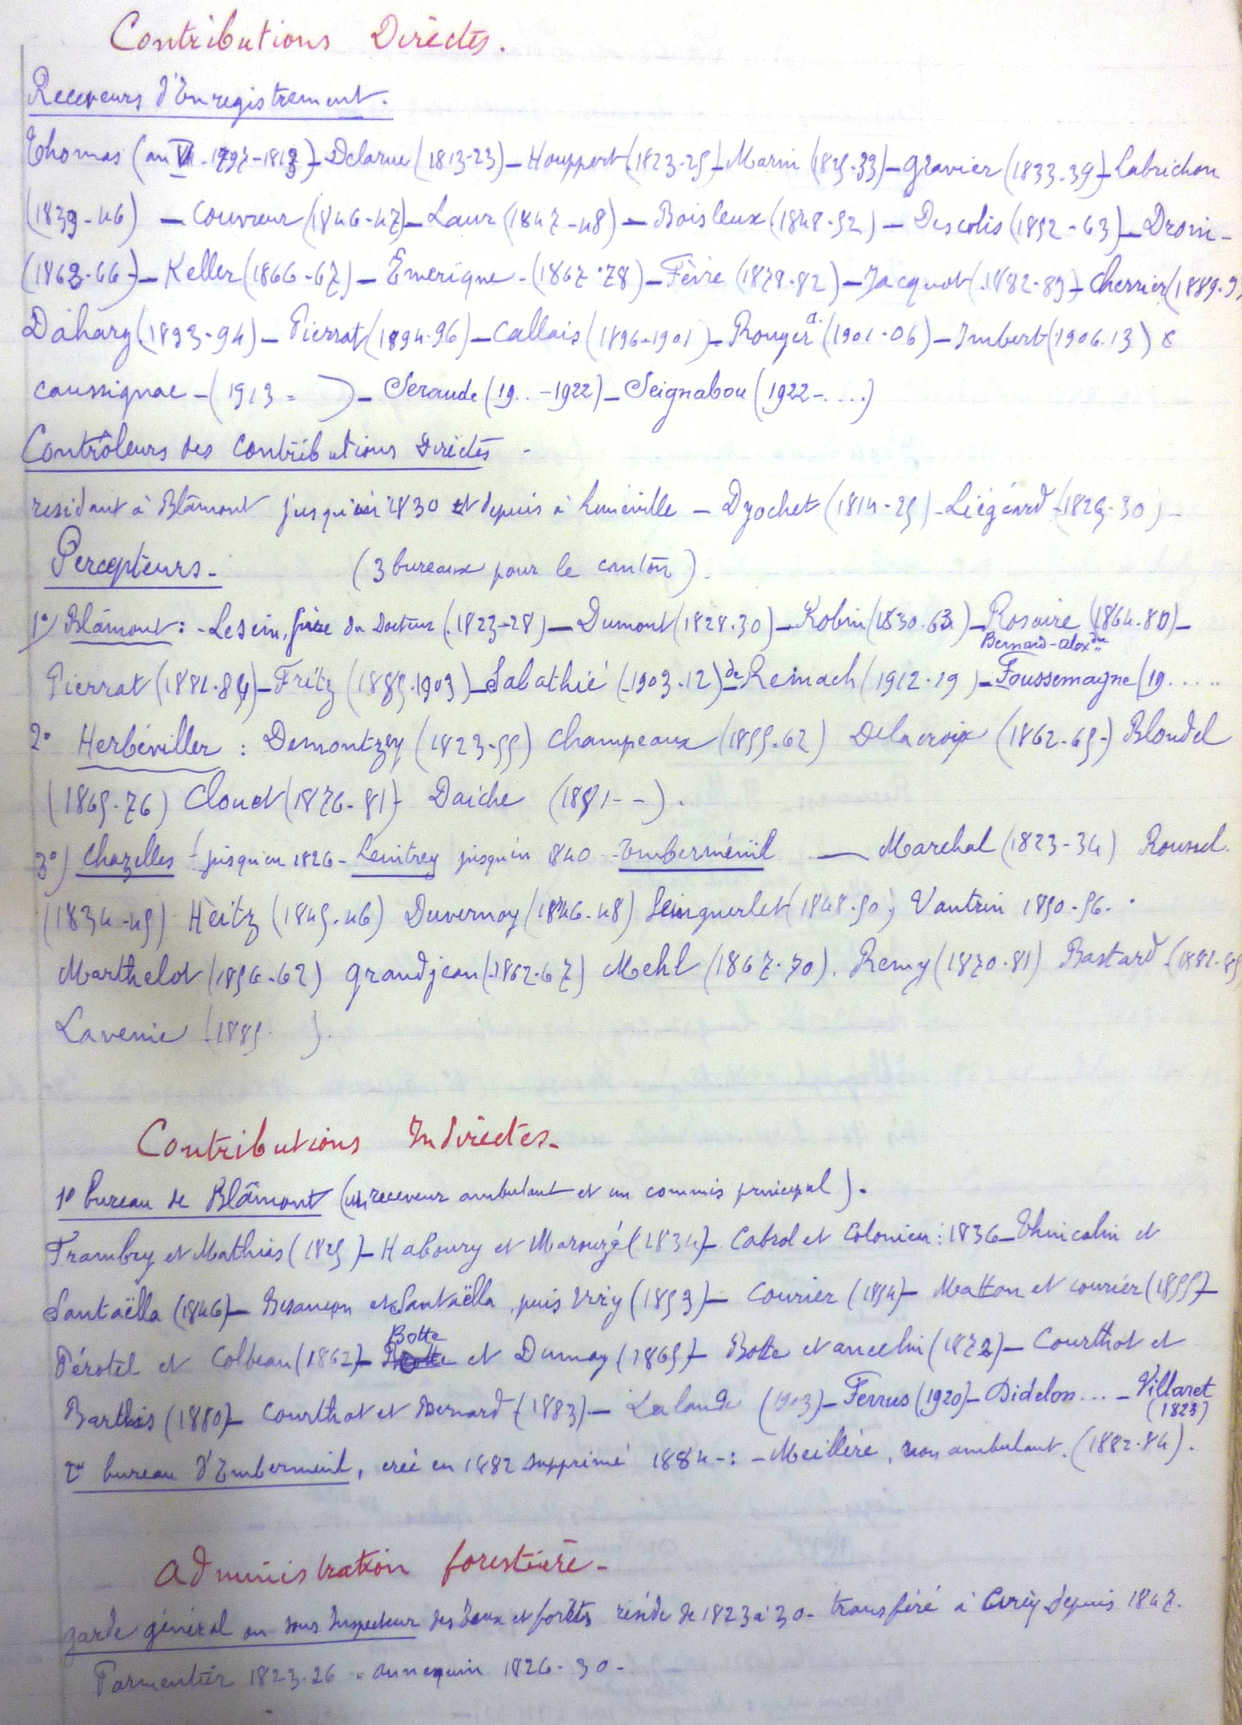 Contributions Directes.
Receveurs d'Enregistrement.
Thomas (an VI - 1797-1813) - Delarue (1813-23) - Houppert (1823-25) - Marin (1825-33) - Gravier (1833-39) - Labrichon
(1839-46) - Couvreur (1846-47) - Laur (1847-48) - Boisleux (1848-52) - Descolis (1852-63) - Drouin -
(1863-66) - Keller (1866-67) - Emerique - (1867-78) - Fèvre (1878-82) - Jacquot (1882-89) - Cherrier (1889-9
Daharg (1893-94) - Pierrat (1894-96) - Callais (1896-1901) - Rouger (1901-06) - Imbert (1906-13) &
Caussignac - (1913 - ) - Seraude (19.. - 1922) - Seignabou (1922 - ....)
Contrôleurs des Contributions Directes -
residant à Blâmont jusqu'en 1830 et depuis à Lunéville - Dyochet (1814-25) - Liégeard - (1825-30) -
Percepteurs - (3 bureaux pour le canton).
1°/ Blâmont : - Lesein, frère du Docteur (1823-28) - Dumont (1828-30) - Robin (1830-63) - Rosaire (1864-80) -
Bernard-Alexdre
Pierrat (1881-84) - Fritz (1885-1903) - Sabathié (1903-12) - de Reinach (1912-19) - Foussemagne (19.....
2° Herbéviller : Demontzey (1823-55) Champeaux (1855-62) Delacroix (1862-65-) Blondel
(1865-76) Clouet (1876-81) - Daiche (1881--).
3°) Chazelles - jusqu'en 1826 - Leintrey jusqu'en 840 - Emberménil - Marchal (1823-34) Roussel
(1834-45) Heitz (1845-46) Duvernoy (1846-48) Seinguerlet (1848-50) Vautrin 1850-56.
Marthelot (1856-62) Grandjean (1862-67) Mehl (1867-70). Remy (1870-81) Bastard - (1881-85)
Lavenie (1885 ).
Contributions Indirectes -
1° bureau de Blâmont (un receveur ambulant et un commis principal).
Frambry et Mathis (1825) - Haboury et Marouzé (1834) - Cabrol et Colonieu : 1836 - Thinicalin et
Santaëlla (1846) - Besançon et Santaëlla puis Viry (1853) - Courier (1854) - Matton et Courier (1855) -
Pérotel et Colbeau (1862) - Botte et Dumay (1865) - Botte et Ancelin (1872) - Courthot et
Barthis (1880) - Courthot et Bernard (1883) - Lalande (1903) - Ferrus (1920) - Didelon ... - Villaret
(1823)
2e bureau d'Embermenil, créé en 1882 supprimé 1884 - : - Meillère, ambulant. (1882-84).
Administration forestière -
garde général ou sous Inspecteur des Eaux et forêts réside de 1823 à 30 - transféré à Cirey depuis 1847.
Parmentier 1823-26 - Annequin 1826-30 -